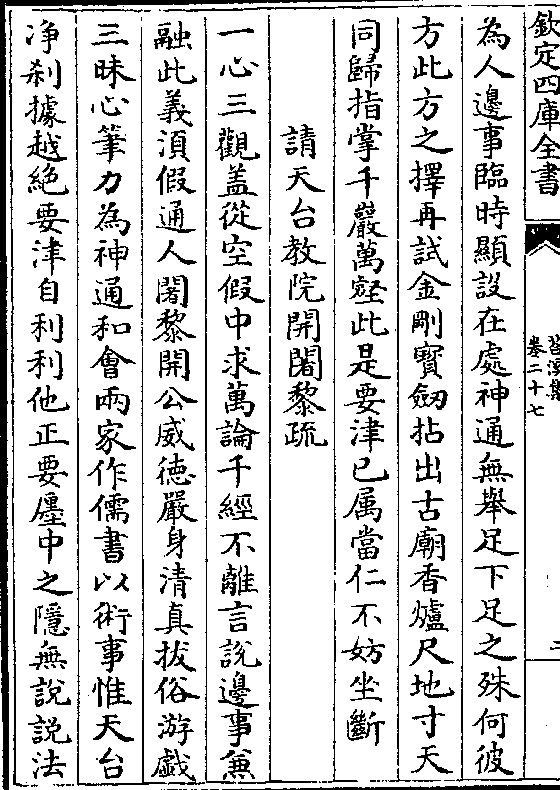 欽定四庫全書
卷二十七
為人邊事臨時顯設在處神通無舉足下足之殊何彼
方此方之擇再試金剛寶劔拈出古廟香爐尺地寸天
同歸指掌千巖萬壑此是要津已属當仁不妨坐斷
請天台教院開闍黎疏
一心三觀盖從空假中求萬論千經不離言說邊事兼
融此義湏假通人闍黎開公威德嚴身清真拔俗游戯
三昧心筆力為神通和會兩家作儒書以術事惟天台
净刹據越絶要津自利利他正要廛中之隱無說説法